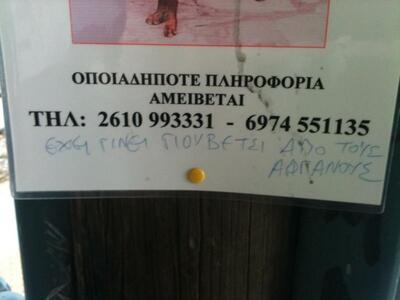 ΟΠΟΙΑΔΗΠΟΤΕ ΠΛΗΡΟΦΟΡΙΑ
ΑΜΕΙΒΕΤΑΙ
ΤΗΛ: 2610 993331 - 6974 551135
ΕΧΕΙ ΓΙΝΕΙ ΓΙΟΥΒΕΤΣΙ ΑΠΟ ΤΟΥΣ
ΑΦΓΑΝΟΥΣ